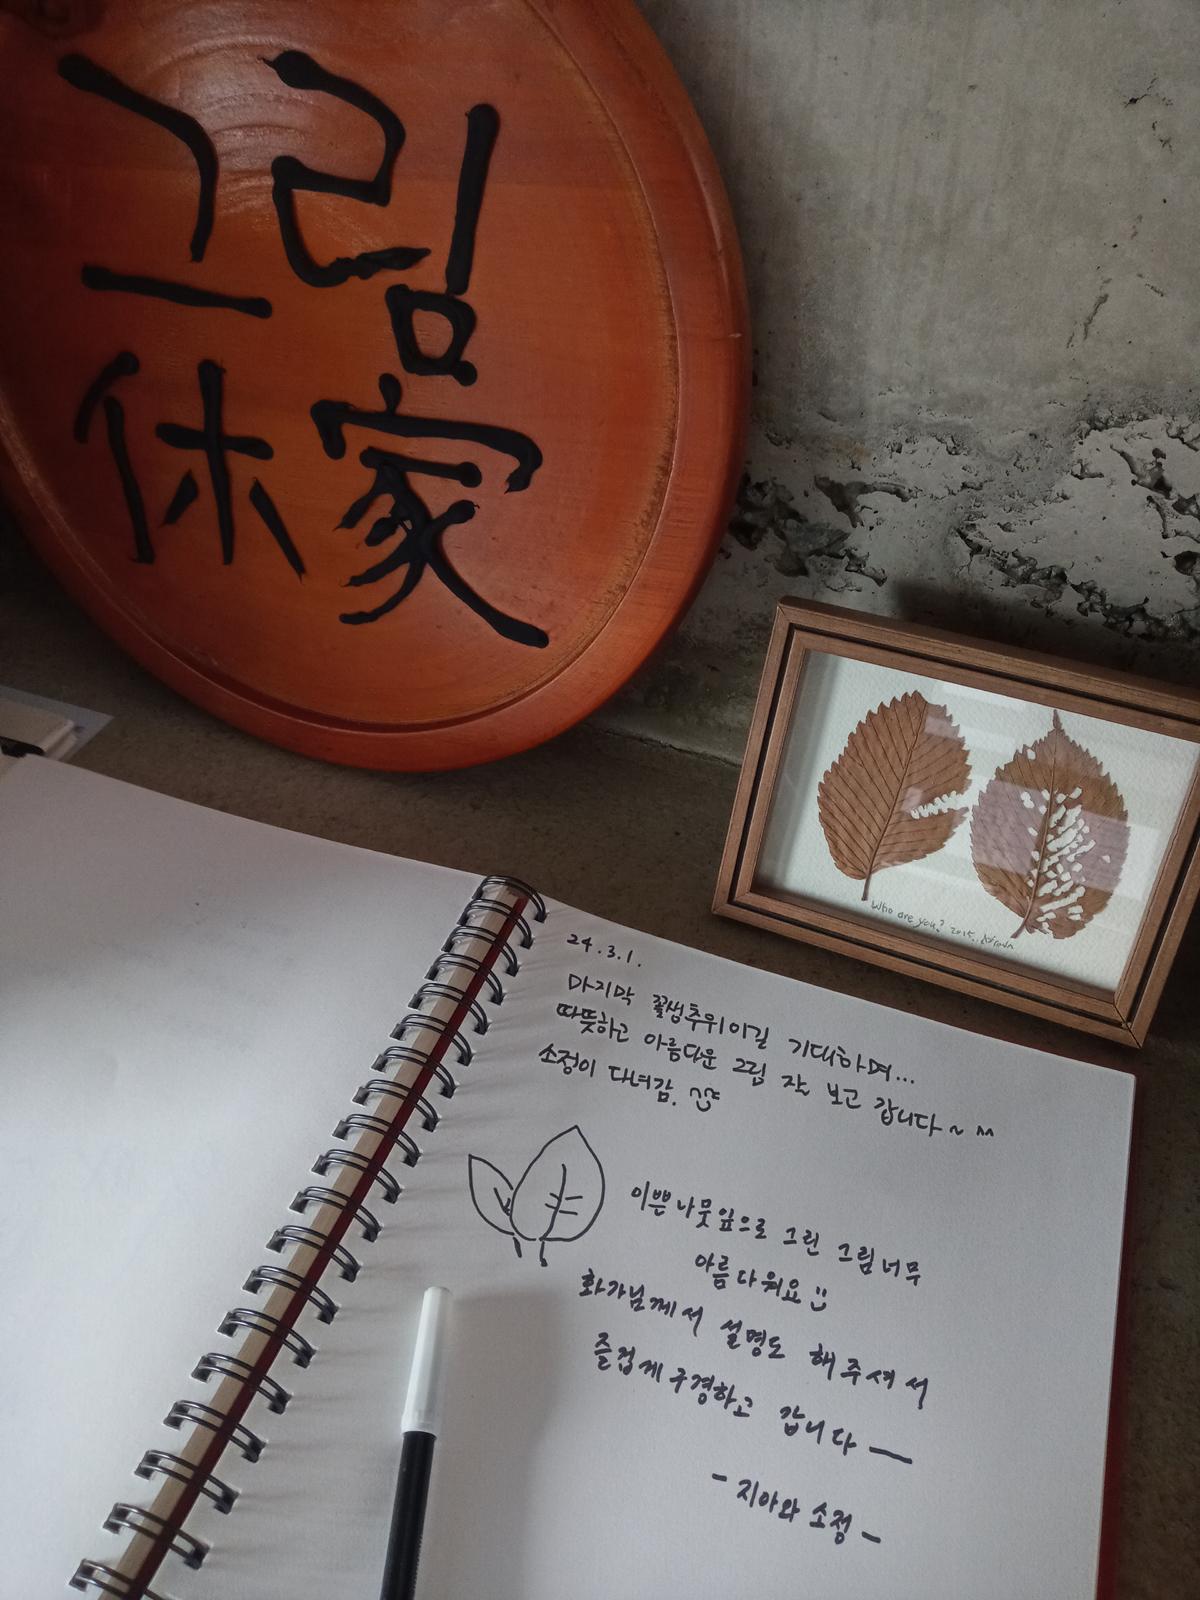 그림
休家
Who are you? 2015.
24.3.1.
마지막 꽃샘추위이길 기대하며...
따뜻하고 아름다운 그림 잘 보고 갑니다~ ^^
소정이 다녀감.
이쁜 나뭇잎으로 그린 그림 너무
아름다워요
화가님께서 설명도 해주셔서
즐겁게 구경하고 갑니다 —
- 지아와 소정 -